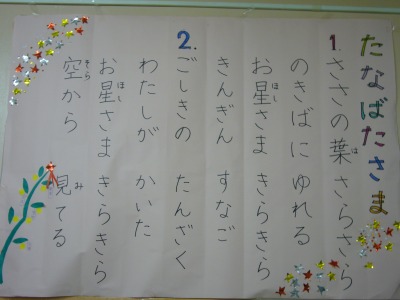 たなばたさま
1. ささの葉 さらさら
のきばに ゆれる
お星さま きらきら
きんぎん すなご
2. ごしきの たんざく
わたしが かいた
お星さま きらきら
空から 見てる
は
ほし
ほし
そら
み